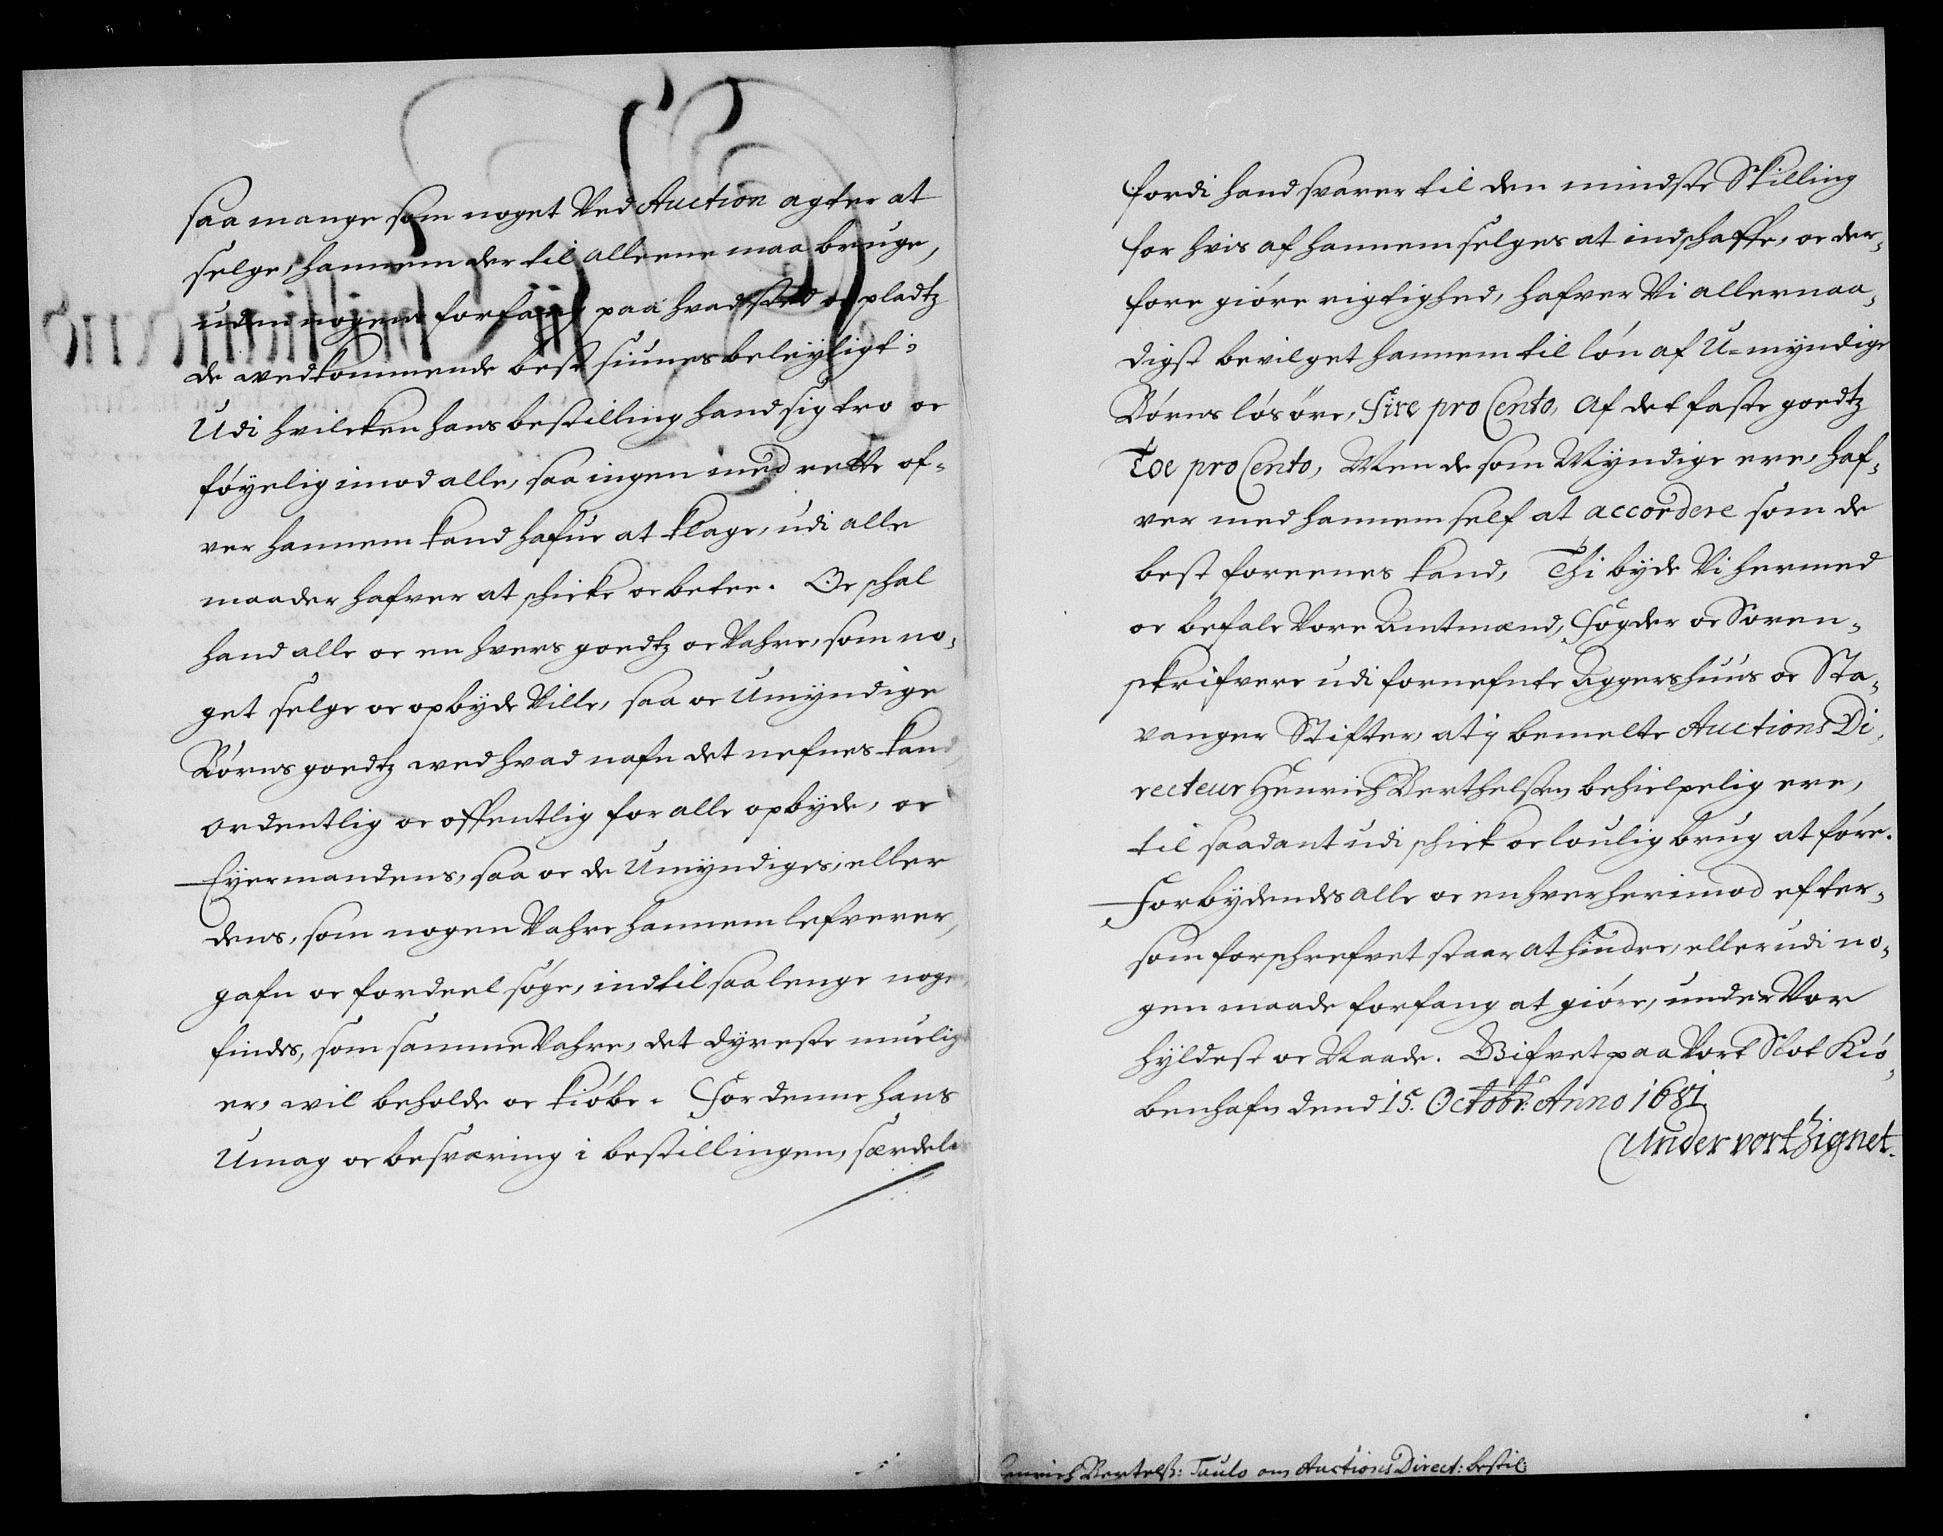 saa mange som noget Ved Auction agter at
selge, hannem der til alleene maa bruge,
uden nogens forfang paa hvad sted oc pladtz
de wedkommende best siunes beleyligt:
Udi hvilcken hans bestilling hand sig tro oc
føyelig imod alle, saa ingen med rette of-
ver hannem kand hafue at klage, udi alle
maader hafver at schicke oc betee. Oc schal
hand alle oc en hvers goedtz oc Vahre, som no-
get selge oc opbyde Ville, saa oc Umyndige
Børns goedtz wed hvad nafn det nefnes kand,
ordentlig oc offentlig for alle opbyde, oc
Eyermandens, saa oc de Umyndiges, eller
dens, som nogen Vahre hannem lefverer,
gafn oc fordeel søge, indtil saa lenge nogen
findes, som samme Vahre, det dyreste muligt
er, wil beholde oc kiøbe. For denne hans
Umag oc besværing i bestillingen, særdelis
fordi hand svarer til den mindste Skilling
for hvis af hannem selges at indschaffe, oc der-
fore giøre rigtighed, hafver Vi allernaa-
digst bevilget hannem til løn af U-myndige
Børns løsøre, Fire pro Cento, af det faste goedtz
Toe pro Cento, Men de som Myndige ere, haf-
ver med hannem self at accordere som de
best foreenes kand, Thi byde Vi hermed
oc befale Vore Amtmænd, Fogder oc Soren-
skrifvere udi fornefnte Aggershuus oc Sta-
vanger Stifter, at i bemelte Auctions Di-
recteur Henrich Berthelsen behielpelig ere,
til saadant udi schick oc loulig brug at føre.
Forbydendes alle oc enhver herimod efter-
som forschrefvet staar at hindre, eller udi no-
gen maade forfang at giøre, under Vor
hyldest oc Naade. Gifvet paa Vort Slot Kiø-
benhafn dend 15. Octobr: Anno 1681
Under vort Zignet.
Henrich Bertelss: Taulo om Auctions Direct: bestil: